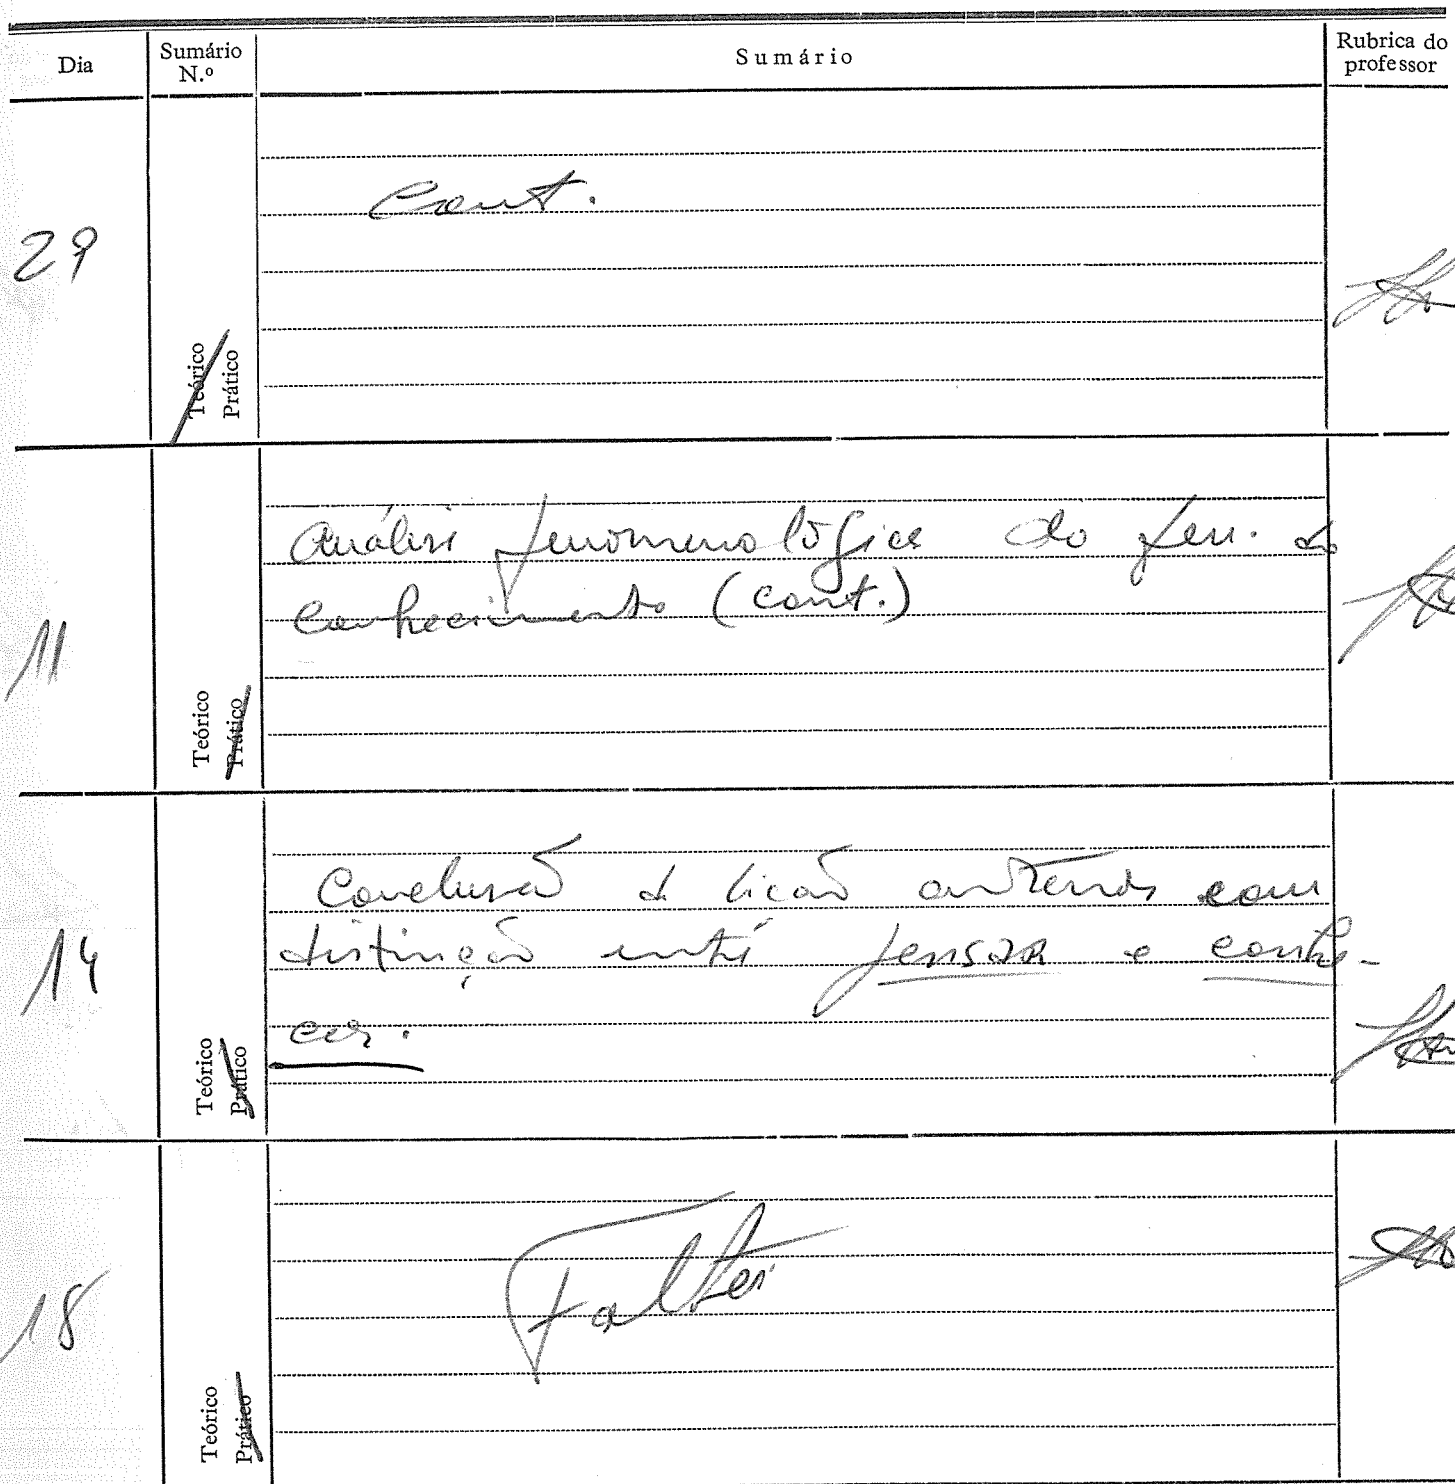 Dia
Sumário N.º
Sumário
Rubrica do professor
29
Cont.
Teórico
Prático
11
Análise fenomenológica do fen. do
conhecimento (cont.)
Teórico
Prático
14
Conclusão da lição anterior com
distinção entre pensar e conhe-
cer.
Teórico
Prático
18
Faltei
Teórico
Prático